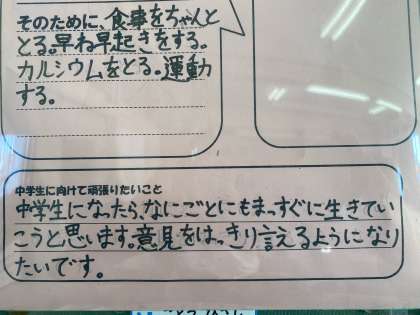 そのために、食事をちゃんと
とる。早ね早起きをする。
カルシウムをとる。運動
する。
中学生に向けて頑張りたいこと
中学生になったら、なにごとにもまっすぐに生きてい
こうと思います。意見をはっきり言えるようになり
たいです。